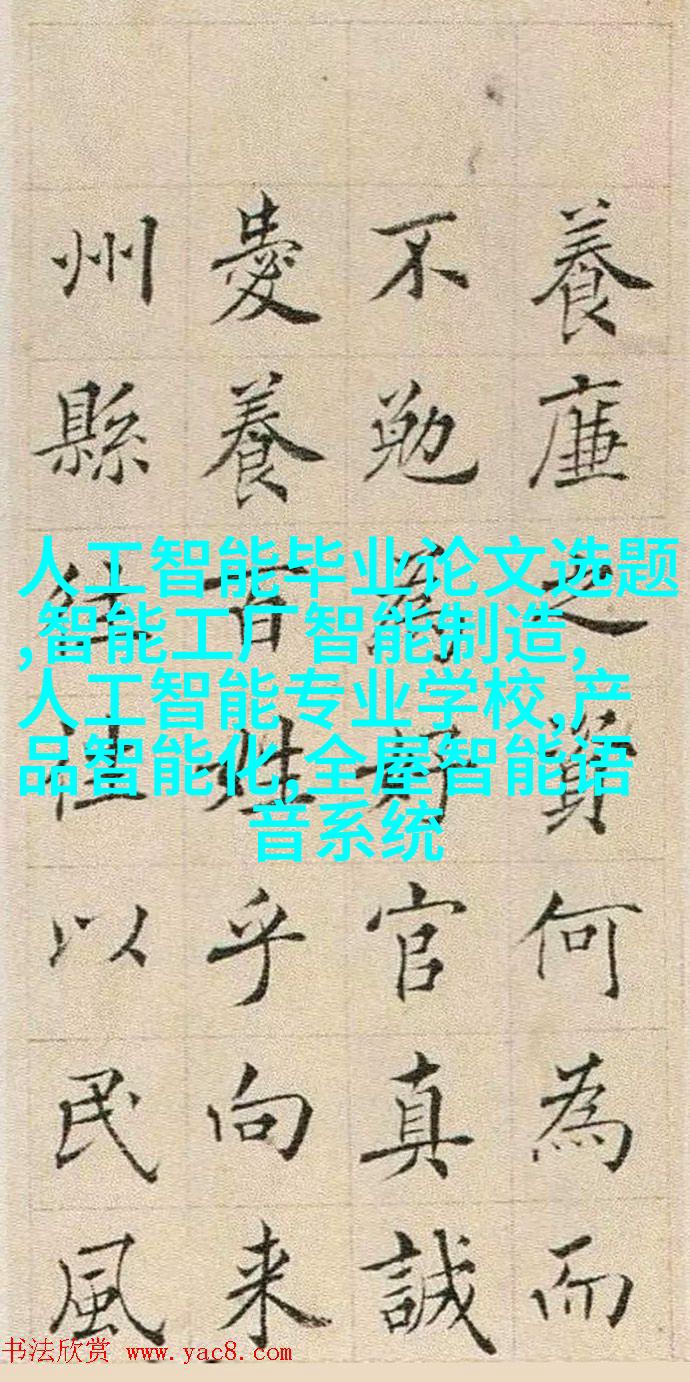 養廉之資何為而
不勉為好官真誠
愛養百姓乎向来
州縣往往以民風
人工智能毕业论文选题
,智能工厂智能制造,
人工智能专业学校,产
品智能化,全屋智能语
音系统
书法欣赏 www.yac8.com